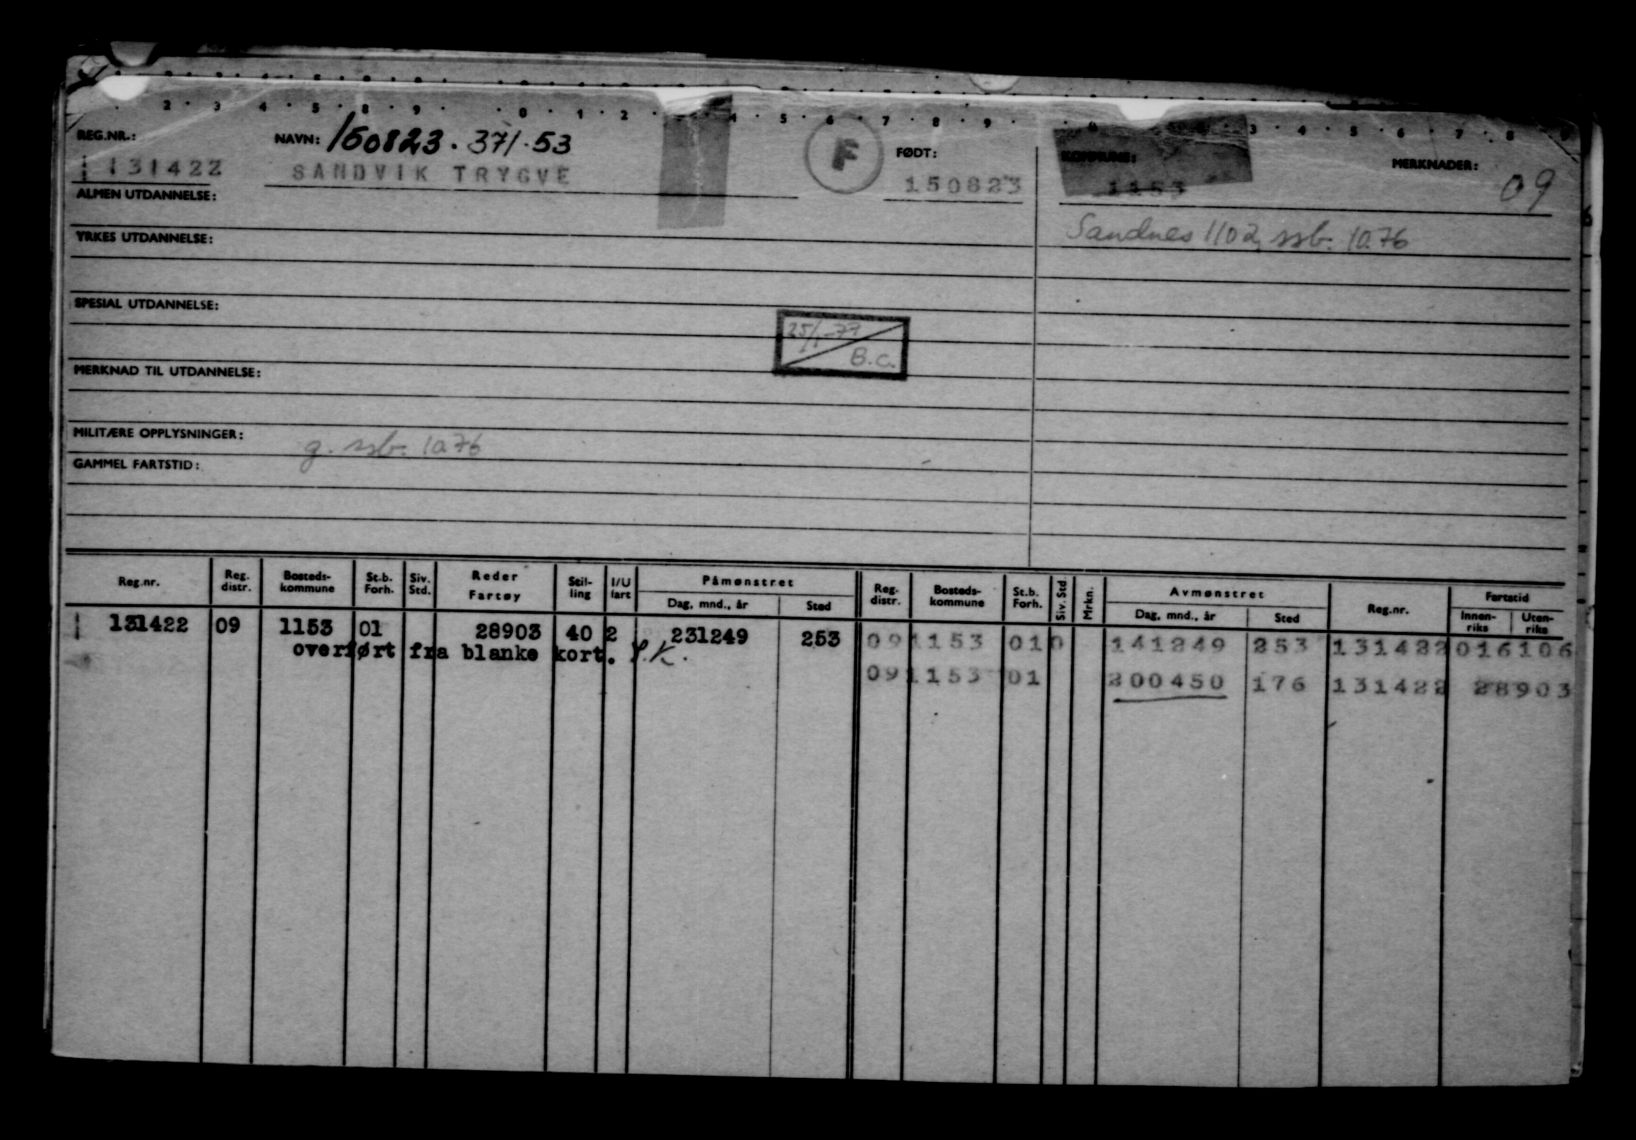 2 · 3 · 4 · 5 · 8 · 9 · 0 · 1 · 2 · 4 · 5 · 6 · 7 · 8 · 9 · 3 · 4 · 5 · 6 · 7 · 8
REG.NR.: NAVN: 150823 · 371 · 53 F FØDT: KOMMUNE: MERKNADER:
131422 SANDVIK TRYGVE 150823 1153 09
ALMEN UTDANNELSE:
Sandnes 1102, ssb. 10.76
YRKES UTDANNELSE:
SPESIAL UTDANNELSE:
25/1-79
B.C.
MERKNAD TIL UTDANNELSE:
MILITÆRE OPPLYSNINGER:
g. ssb. 10.76
GAMMEL FARTSTID:
Reg.nr. Reg. distr. Bosteds-kommune St.b. Forh. Siv. Std. Reder Fartøy Stil-ling I/U fart Påmønstret Dag, mnd., år Sted Reg. distr. Bosteds-kommune St.b. Forh. Siv. Std Mrkn. Avmønstret Dag, mnd., år Sted Reg.nr. Fartstid Innen-riks Uten-riks
131422 09 1153 01 28903 40 2 231249 253 09 1153 01 0 141249 253 131422 016106
overført fra blanke kort. 09 1153 01 200450 176 131422 28903